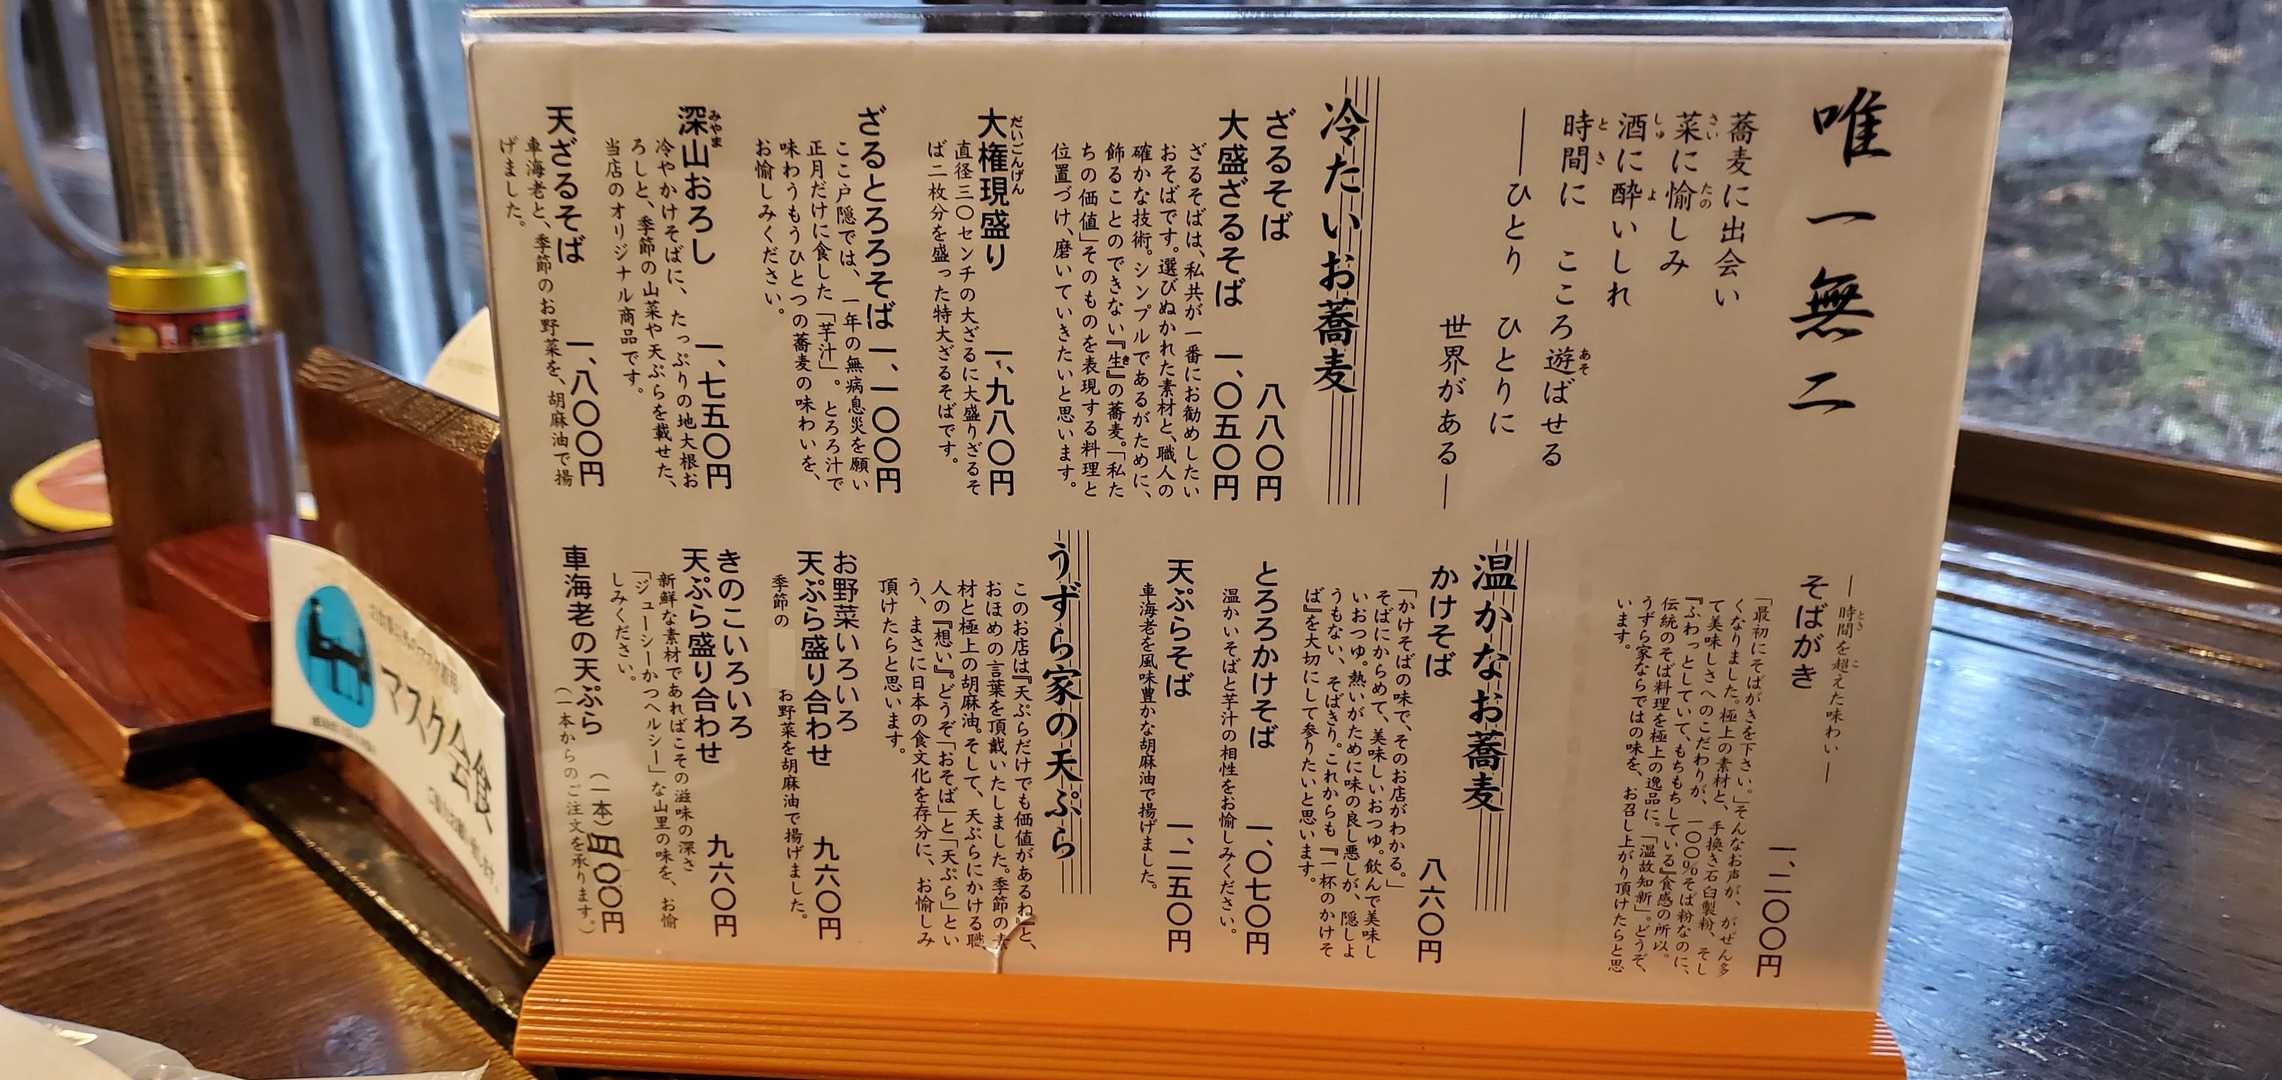 唯一無二
蕎麦に出会い
菜に愉しみ
酒に酔いしれ
時間に　こころ遊ばせる
――ひとり　ひとりに
世界がある―
―時間を超えた味わい―
そばがき　一、二〇〇円
「最初にそばがきを下さい。」そんなお声が、がぜん多
くなりました。極上の素材と、手挽き石臼製粉、そし
て美味しさへのこだわりが、一〇〇％そば粉なのに、
『ふわっとしていて、もちもちしている』食感の所以。
伝統のそば料理を極上の逸品に。「温故知新」。どうぞ、
うずら家ならではの味を、お召し上がり頂けたらと思
います。
冷たいお蕎麦
ざるそば　八八〇円
大盛ざるそば　一、〇五〇円
ざるそばは、私共が一番にお勧めしたい
おそばです。選びぬかれた素材と、職人の
確かな技術。シンプルであるがために、
飾ることのできない『生』の蕎麦。「私た
ちの価値」そのものを表現する料理と
位置づけ、磨いていきたいと思います。
大権現盛り　一、九八〇円
直径三〇センチの大ざるに大盛りざるそ
ば二枚分を盛った特大ざるそばです。
ざるとろろそば　一、一〇〇円
ここ戸隠では、一年の無病息災を願い
正月だけに食した「芋汁」。とろろ汁で
味わうもうひとつの蕎麦の味わいを、
お愉しみください。
深山おろし　一、七五〇円
冷やかけそばに、たっぷりの地大根お
ろしと、季節の山菜や天ぷらを載せた、
当店のオリジナル商品です。
天ざるそば　一、八〇〇円
車海老と、季節のお野菜を、胡麻油で揚
げました。
温かなお蕎麦
かけそば　八六〇円
「かけそばの味で、そのお店がわかる。」
そばにからめて、美味しいおつゆ。飲んで美味し
いおつゆ。熱いがために味の良し悪しが、隠しよ
うもない、そばきり。これからも『一杯のかけそ
ば』を大切にして参りたいと思います。
とろろかけそば　一、〇七〇円
温かいそばと芋汁の相性をお愉しみください。
天ぷらそば　一、二五〇円
車海老を風味豊かな胡麻油で揚げました。
うずら家の天ぷら
このお店は『天ぷらだけでも価値があるね』と、
おほめの言葉を頂戴いたしました。季節の素
材と極上の胡麻油。そして、天ぷらにかける職
人の『想い』。どうぞ「おそば」と「天ぷら」とい
う、まさに日本の食文化を存分に、お愉しみ
頂けたらと思います。
お野菜いろいろ
天ぷら盛り合わせ　九六〇円
季節の　お野菜を胡麻油で揚げました。
きのこいろいろ
天ぷら盛り合わせ　九六〇円
新鮮な素材であればこその滋味の深さ
「ジューシーかつヘルシー」な山里の味を、お愉
しみください。
車海老の天ぷら　（一本）四〇〇円
（一本からのご注文を承ります。）
マスク会食